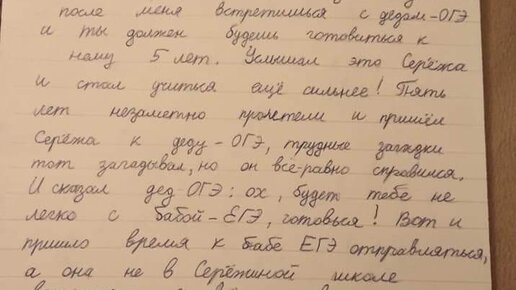 после меня встретишься с дедом-ОГЭ
и ты должен будешь готовиться к
нему 5 лет. Услышал это Серёжа
и стал учиться ещё сильнее! Пять
лет незаметно пролетели и пришёл
Серёжа к деду-ОГЭ, трудные загадки
тот загадывал, но он всё-равно справился.
И сказал дед ОГЭ: ох, будет тебе не
легко с бабой-ЕГЭ, готовься! Вот и
пришло время к бабе ЕГЭ отправляться,
а она не в Серёжиной школе